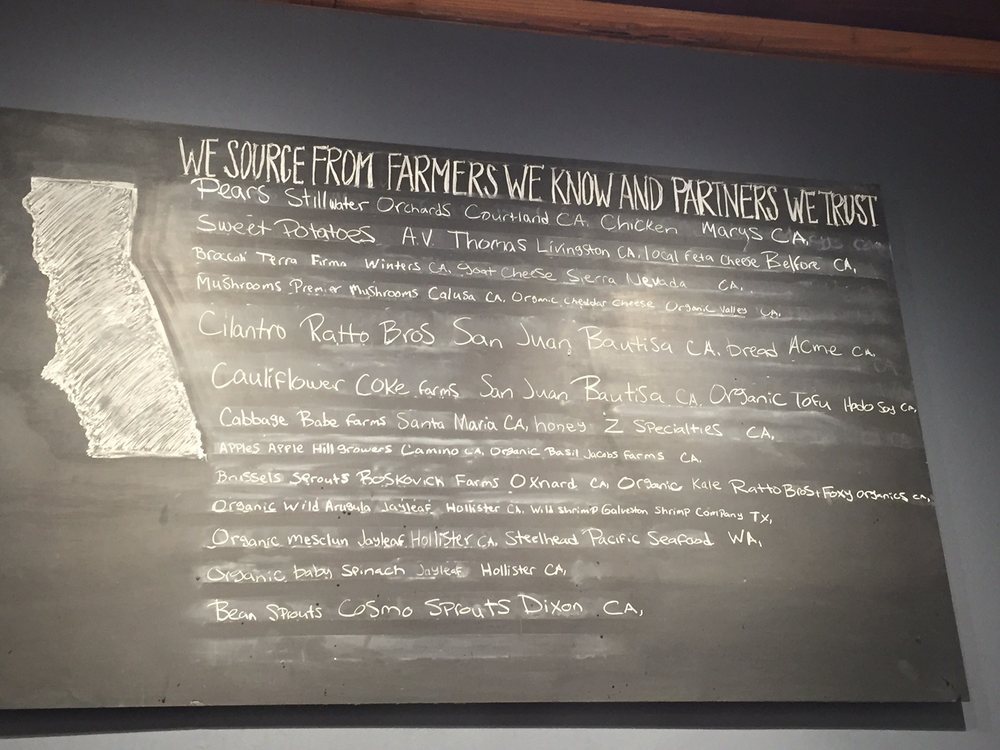 WE SOURCE FROM FARMERS WE KNOW AND PARTNERS WE TRUST
Pears Stillwater Orchards Courtland CA. Chicken Marys CA,
Sweet Potatoes A.V. Thomas Livingston CA, local feta cheese Belfiore CA,
Brocoli Terra Firma Winters CA, goat Cheese Sierra Nevada CA,
Mushrooms Premier Mushrooms Calusa CA. Organic cheddar cheese Organic Valley CA,
Cilantro Ratto Bros San Juan Bautisa CA. bread Acme CA.
Cauliflower Coke farms San Juan Bautisa CA, Organic Tofu Hodo Soy CA,
Cabbage Babe farms Santa Maria CA, honey Z Specialties CA,
Apples Apple Hill growers Camino CA, Organic Basil Jacobs farms CA.
Brussels Sprouts Boskovich Farms Oxnard CA, Organic Kale Ratto Bros + Foxy organics CA,
Organic Wild Arugula Jayleaf Hollister CA. Wild shrimp Galveston Shrimp Company TX,
Organic mesclun Jayleaf Hollister CA. Steelhead Pacific Seafood WA,
Organic baby Spinach Jayleaf Hollister CA,
Bean Sprouts Cosmo Sprouts Dixon CA,